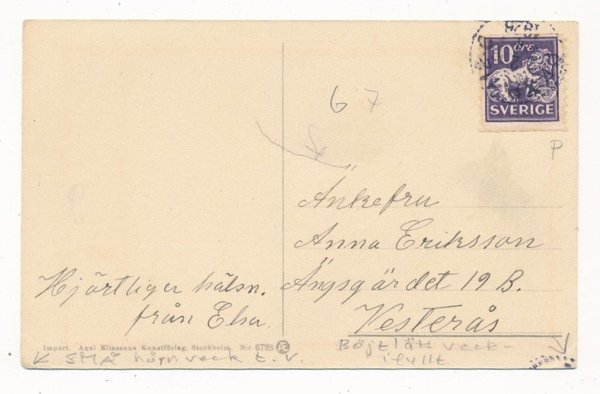 10 öre
SVERIGE
G 7
P
Änkefru
Anna Eriksson
Ängsgärdet 19 B.
Vesterås
Hjärtliga hälsn.
från Elsa.
Import. Axel Eliassons Konstförlag, Stockholm. No 6728
SMÅ hörnveck t. v.
Böjt lätt veck-
ifyllt